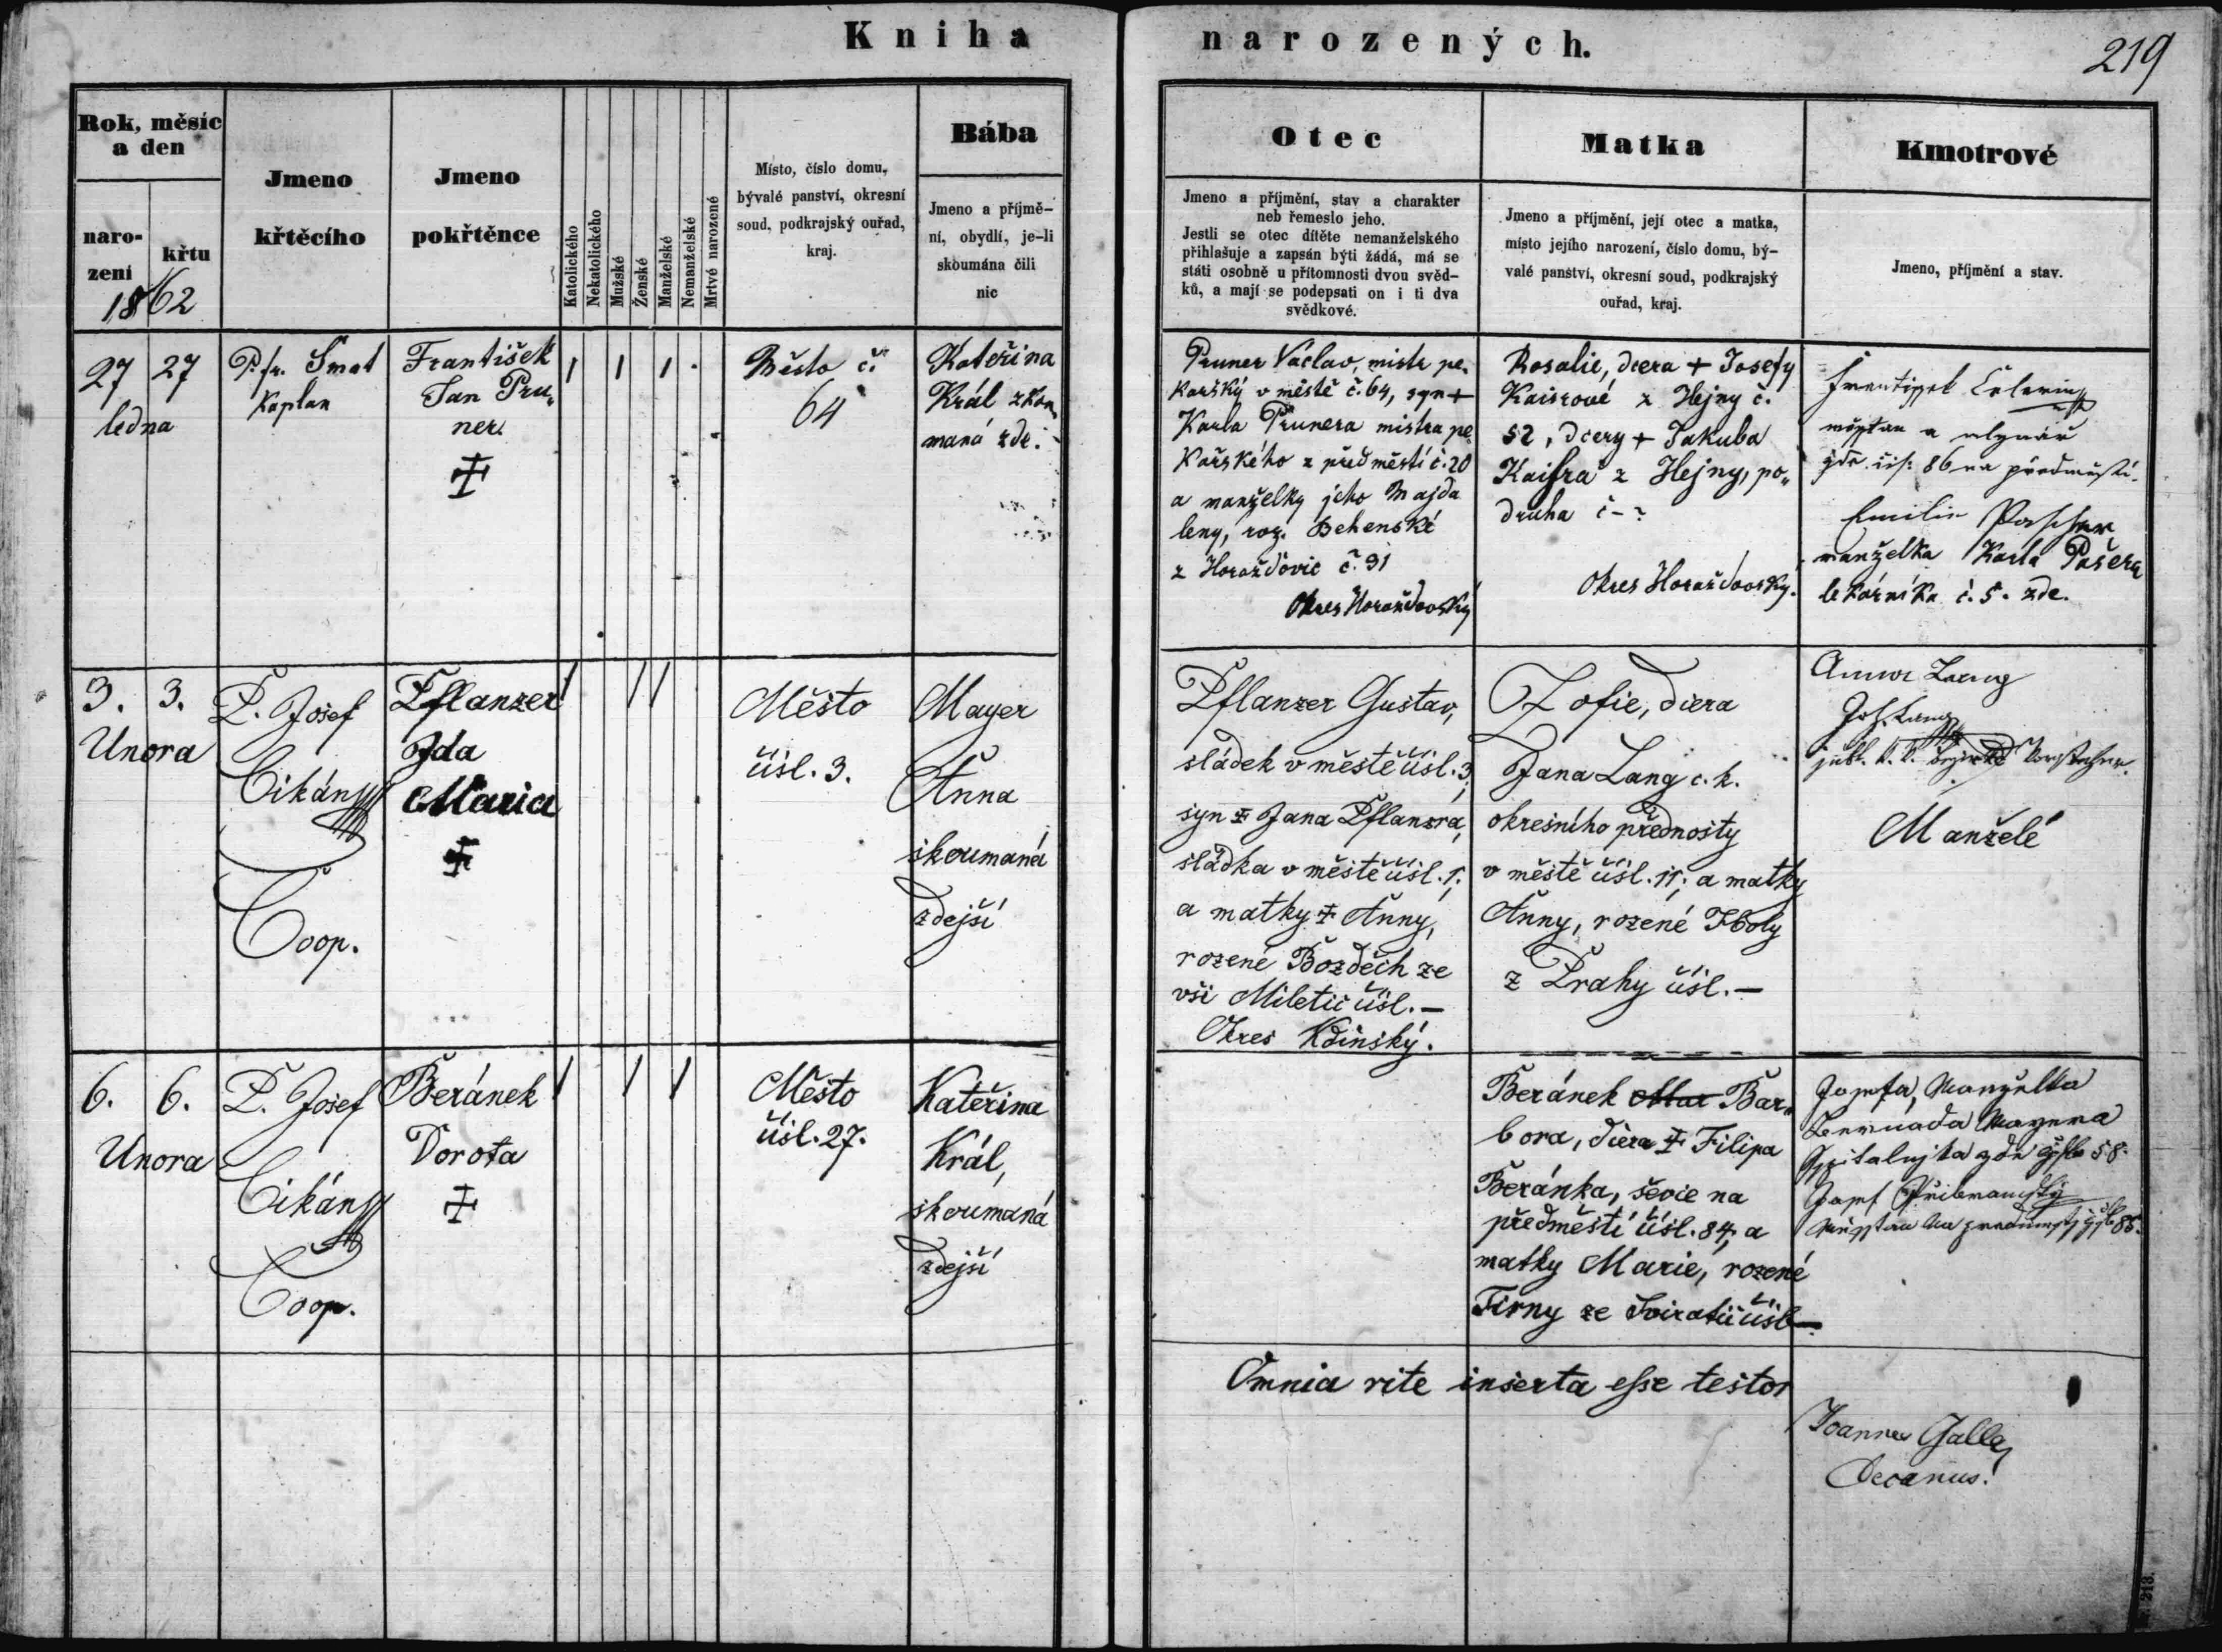 Kniha narozených.
219
Rok, měsíc
a den
naro-
zení
křtu
1862
Jmeno
křtěcího
Jmeno
pokřtěnce
Katolického
Nekatolického
Mužské
Ženské
Manželské
Nemanželské
Mrtvé narozené
Místo, číslo domu,
bývalé panství, okresní
soud, podkrajský ouřad,
kraj.
Bába
Jmeno a příjmě-
ní, obydlí, je-li
skoumána čili
nic
Otec
Jmeno a příjmění, stav a charakter
neb řemeslo jeho.
Jestli se otec dítěte nemanželského
přihlašuje a zapsán býti žádá, má se
státi osobně u přítomnosti dvou svěd-
ků, a mají se podepsati on i ti dva
svědkové.
Matka
Jmeno a příjmění, její otec a matka,
místo jejího narození, číslo domu, bý-
valé panství, okresní soud, podkrajský
ouřad, kraj.
Kmotrové
Jmeno, příjmění a stav.
27 27
ledna
P. fr. Šmat
Kaplan
František
Jan Pru„
ner.
‡
1 1 1
Město č.
64
Kateřina
Král zkou„
maná zde.
Pruner Václav, mistr pe„
kařský v městě č. 64, syn +
Karla Prunera mistra pe„
kařského z předměstí č. 20
a manželky jeho Majda
leny, roz. Behenské
z Horažďovic č. 91
Okres Horažďovský
Rosalie, dcera + Josefy
Kaisrové z Hejny č.
52, dcery + Jakuba
Kaisra z Hejny, po„
druha č - ?
Okres Horažďovský.
František
měšťan a mlynář
zde čís: 86 na předměstí.
Emilie Pascher
manželka Karla Pašera
lekárníka č. 5. zde.
3. 3.
Unora
P. Josef
Cikán
Coop.
Pflanzer
Ida
Maria
‡
1 1 1
Město
čísl. 3.
Mayer
Anna
skoumaná
zdejší
Pflanzer Gustav,
sládek v městě čísl. 3,
syn ‡ Jana Pflanzra,
sládka v městě čísl. 1;
a matky ‡ Anny,
rozené Bozděch ze
vsi Miletic čísl. –
Okres Kdínský.
Zofie, dcera
Jana Lang c. k.
okresního přednosty
v městě čísl. 11; a matky
Anny, rozené Holy
z Prahy čísl. –
Anna Lang
Joh. Lang
jubl. k. k. Bezirks Vorsteher.
Manželé
6. 6.
Unora
P. Josef
Cikán
Coop.
Beránek
Dorota
‡
1 1 1
Město
čísl. 27.
Kateřina
Král,
skoumaná
zdejší
Beránek Mar Bar„
bora, dcera ‡ Filipa
Beránka, ševce na
předměstí čísl. 84, a
matky Marie, rozené
Firny ze Sviratic čísl –
Josefa, Manželka
Bernarda Mayera
zde čislo 58.
Josef Přibramský
měštan na předměstj čjslo 85.
Omnia rite inserta esse testor
Joannes Galle
Decanus.